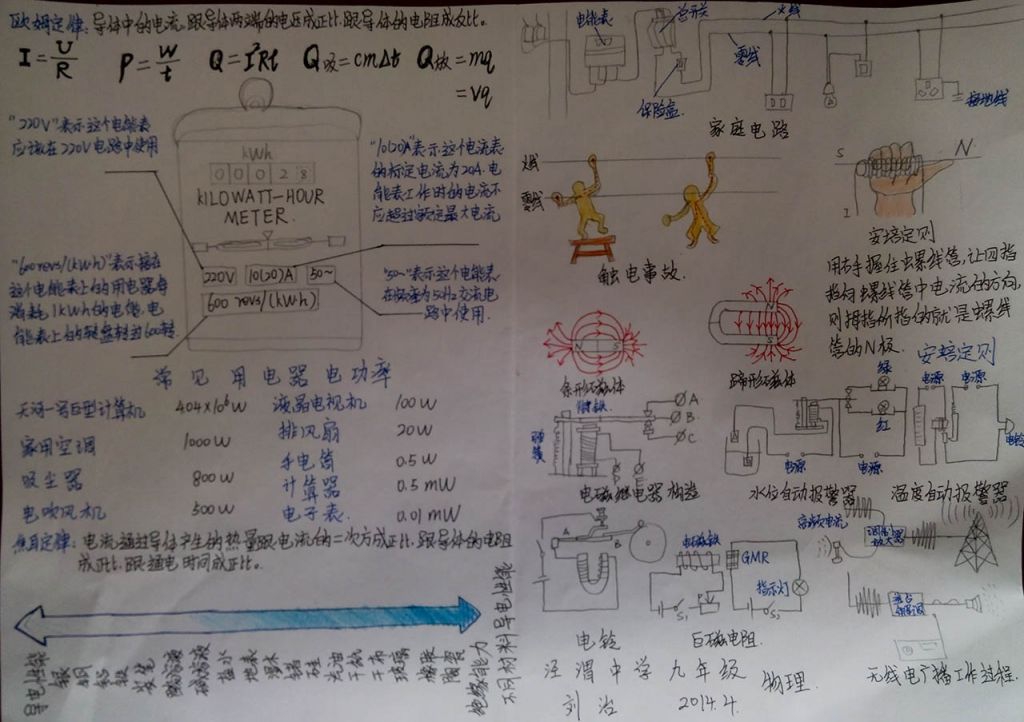 欧姆定律:导体中的电流,跟导体两端的电压成正比,跟导体的电阻成反比。
I=U/R P=W/t Q=I²Rt Q吸=cmΔt Q放=mq
=vq
"220V"表示这个电能表
应该在220V电路中使用
"10(20)A"表示这个电流表
的标定电流为20A.电
能表工作时的电流不
应超过额定最大电流
kWh
0 0 0 2 8
KILOWATT-HOUR
METER.
220V 10(20)A 50~
600 revs/(kWh)
"600revs/(kWh)"表示接在
这个电能表上的用电器每
消耗1kWh的电能,电
能表上的转盘转过600转
"50~"表示这个电能表
在频率为50Hz交流电
路中使用.
常见用电器电功率
天河一号巨型计算机 404×10⁶W 液晶电视机 100W
家用空调 1000W 排风扇 20W
吸尘器 800W 手电筒 0.5W
计算器 0.5mW
电吹风机 500W 电子表. 0.01mW
焦耳定律:电流通过导体产生的热量跟电流的二次方成正比,跟导体的电阻
成正比,跟通电时间成正比。
导电性能
银
铜
铝
铁
炭笔
酸溶液
盐水
地表
湿木
锗
硅
汽油
干纸
干布
玻璃
橡胶
陶瓷
绝缘能力
不同材料导电性能
电能表 总开关 火线
零线
保险盒
接地线
家庭电路
火线
零线
触电事故.
S N
I
安培定则
用右手握住螺线管,让四指
指向螺线管中电流的方向,
则拇指所指的就是螺线
管的N极.
安培定则
N S
条形磁体
蹄形磁体
衔铁
弹簧
A
B
C
D
E
电磁继电器构造
绿
红
电源
电源
水位自动报警器
电源 电源
电铃
温度自动报警器
A
B
电铃
电磁铁
GMR
指示灯
S₁
S₂
巨磁电阻.
高频电流
调制
放大器
无线电广播工作过程.
泾渭中学 九年级 物理.
刘治 2014.4.